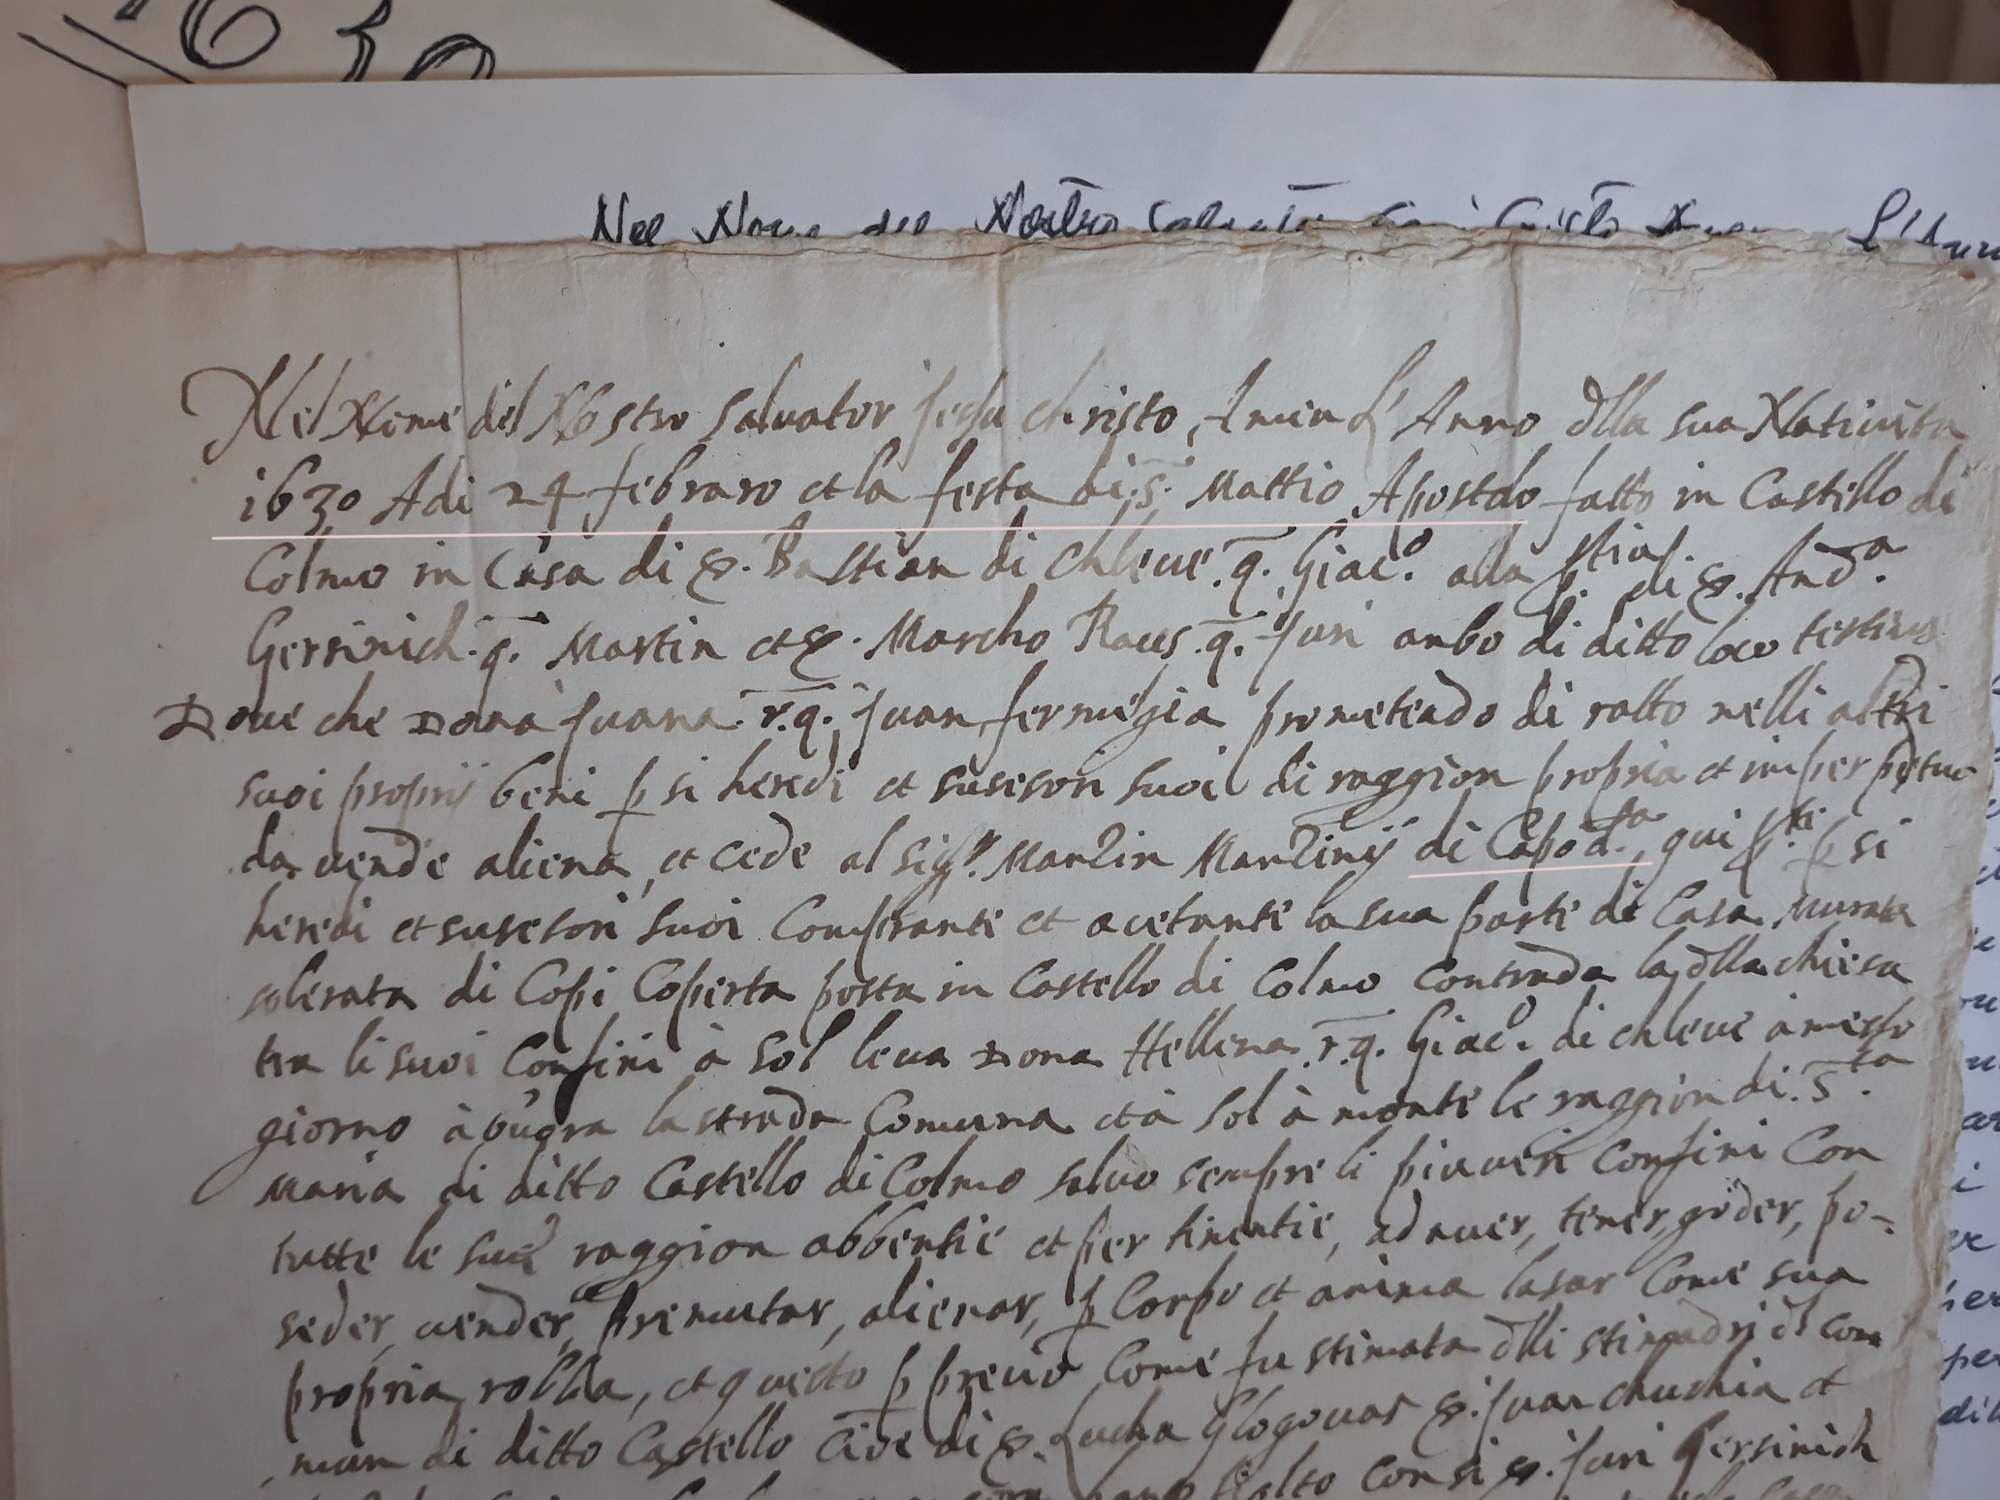 1630
Nel Nome del Nostro Salvator Cristo L'Anno
Nel Nome del Nostro Saluator Jesu christo, Amen L'Anno dlla sua Natiuita
1630 Adi 24 febraro et la festa di S. Mattio Apostolo fatto in Castello di
Colmo in Casa di s. Bastian di chleue .q. Giac.o alla p. stial. di s. And.a
Gersinich .q. Martin et s. Marcho Raus .q. Juri anbo di ditto loco testimo
Doue che Dona Juana .r.q. Juan fermegia prometendo di ratto nelli altri
suoi proprij beni p si heredi et susesori suoi di raggion propria et inperpetuo
da vende aliena, et cede al sig.r Martin Martinij di Capod.a, qui p.te p si
heredi et susesori suoi Comprante et acetante la sua parte di Casa murata
solerata di Copi Coperta posta in Castello di Colmo Contrada la dlla chiesa
tra li suoi Confini à Sol leua Dona Hellena .r.q. Giac.o di chleue à meso
giorno à bugra la strada Comuna et à Sol à monte le raggion di S.ta
Maria di ditto Castello di Colmo saluo sempre li piu ueri Confini Con
tutte le sue raggion abbentie et pertinentie, ad auer, tener, goder, po-
seder, uender, premutar, alienar, p Corpo et anima lasar Come sua
propria robba, et questo p precio Come fu stimata dlli stimadri dl Com
mun di ditto Castello Cioe di s. Lucha Glogouas s. Juan chuchia et
alto Con si s. Juri Gersinich